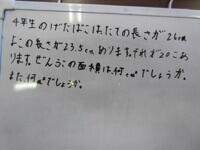 4年生のげたばこはたての長さが26cm
よこの長さが23.5cmあります。それが20こあ
ります。ぜんぶの面積は何cm²でしょうか。
また何m²でしょうか。